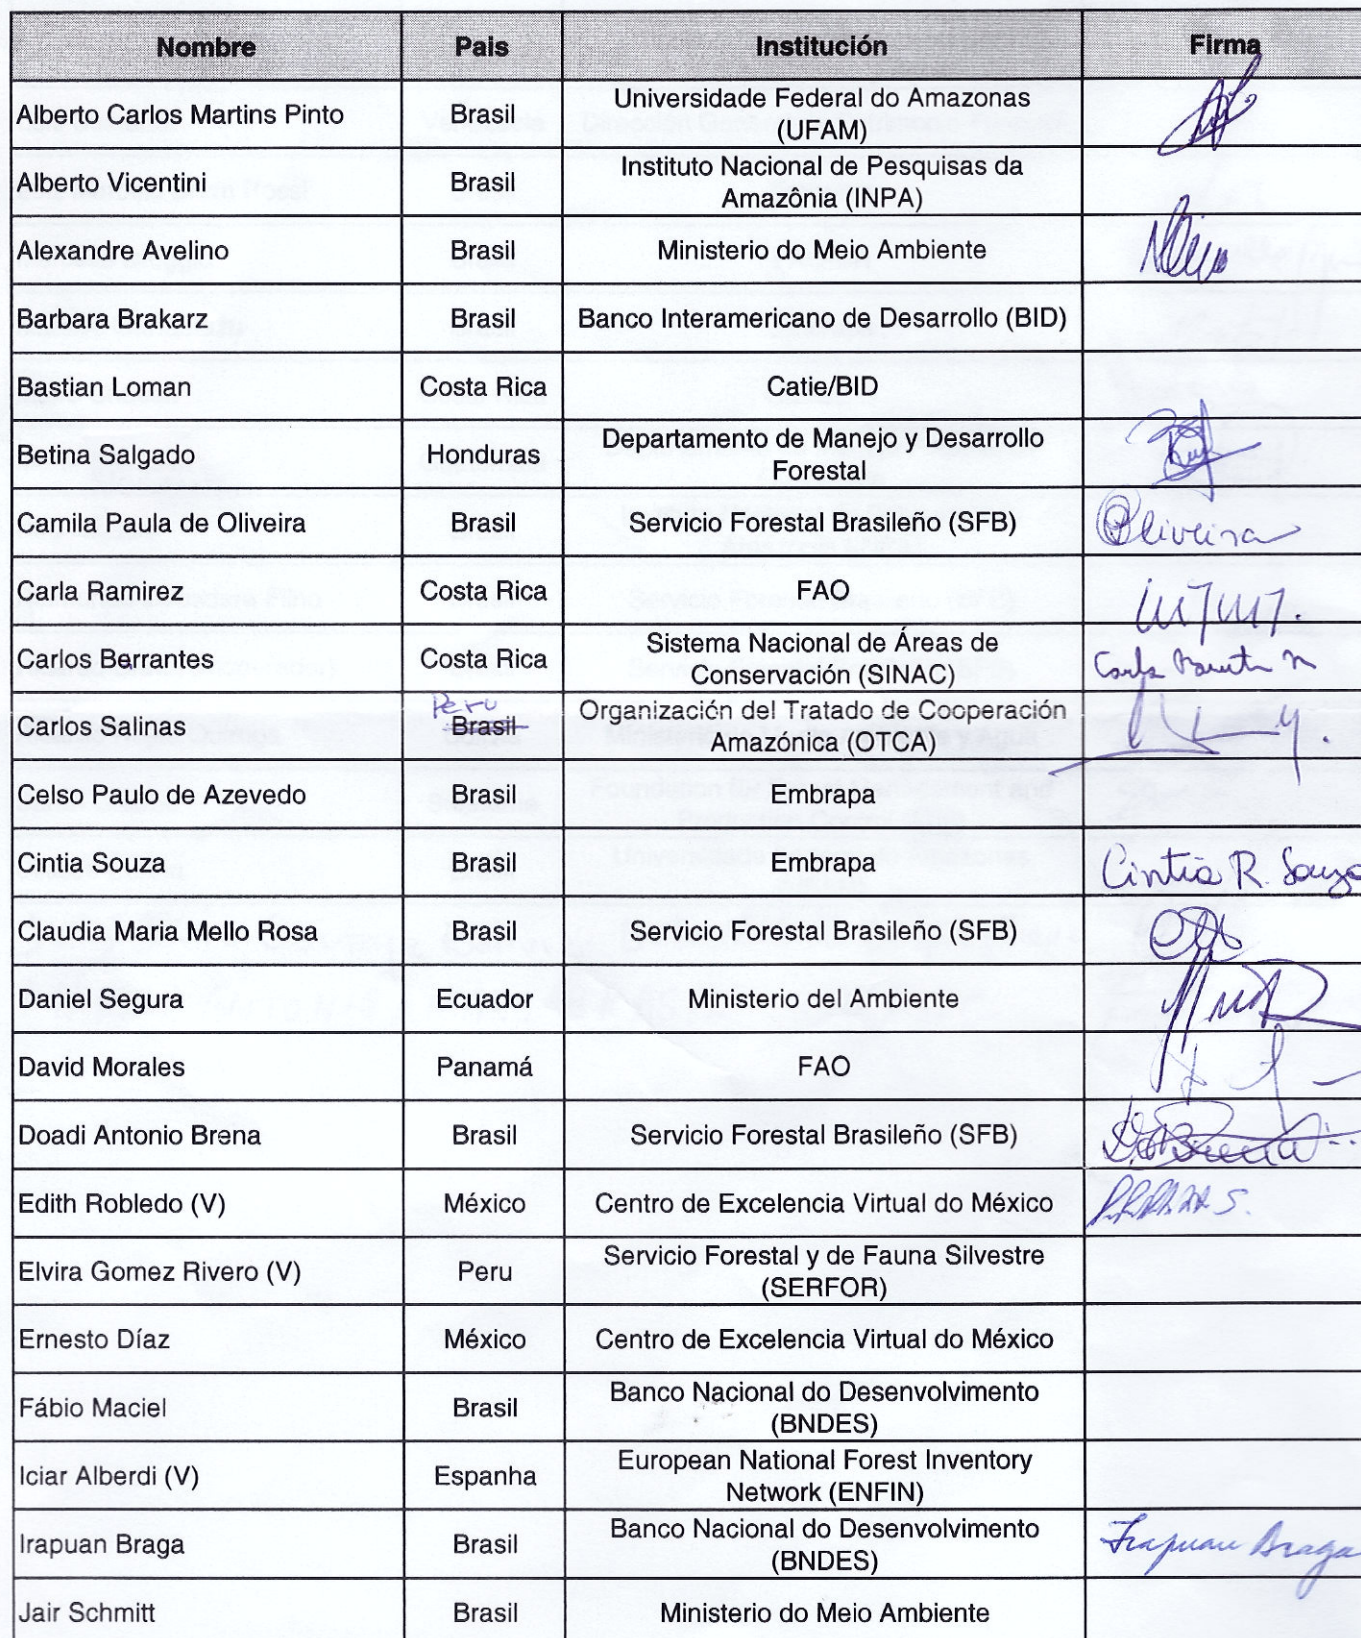 Nombre Pais Institución Firma
Alberto Carlos Martins Pinto Brasil Universidade Federal do Amazonas
(UFAM)
Alberto Vicentini Brasil Instituto Nacional de Pesquisas da
Amazônia (INPA)
Alexandre Avelino Brasil Ministerio do Meio Ambiente
Barbara Brakarz Brasil Banco Interamericano de Desarrollo (BID)
Bastian Loman Costa Rica Catie/BID
Betina Salgado Honduras Departamento de Manejo y Desarrollo
Forestal
Camila Paula de Oliveira Brasil Servicio Forestal Brasileño (SFB) Oliveira
Carla Ramirez Costa Rica FAO
Carlos Berrantes Costa Rica Sistema Nacional de Áreas de
Conservación (SINAC)
Peru
Carlos Salinas Brasil Organización del Tratado de Cooperación
Amazónica (OTCA)
Celso Paulo de Azevedo Brasil Embrapa
Cintia Souza Brasil Embrapa Cintia R. Souza
Claudia Maria Mello Rosa Brasil Servicio Forestal Brasileño (SFB)
Daniel Segura Ecuador Ministerio del Ambiente
David Morales Panamá FAO
Doadi Antonio Brena Brasil Servicio Forestal Brasileño (SFB)
Edith Robledo (V) México Centro de Excelencia Virtual do México
Elvira Gomez Rivero (V) Peru Servicio Forestal y de Fauna Silvestre
(SERFOR)
Ernesto Díaz México Centro de Excelencia Virtual do México
Fábio Maciel Brasil Banco Nacional do Desenvolvimento
(BNDES)
Iciar Alberdi (V) Espanha European National Forest Inventory
Network (ENFIN)
Irapuan Braga Brasil Banco Nacional do Desenvolvimento
(BNDES) Irapuan Braga
Jair Schmitt Brasil Ministerio do Meio Ambiente